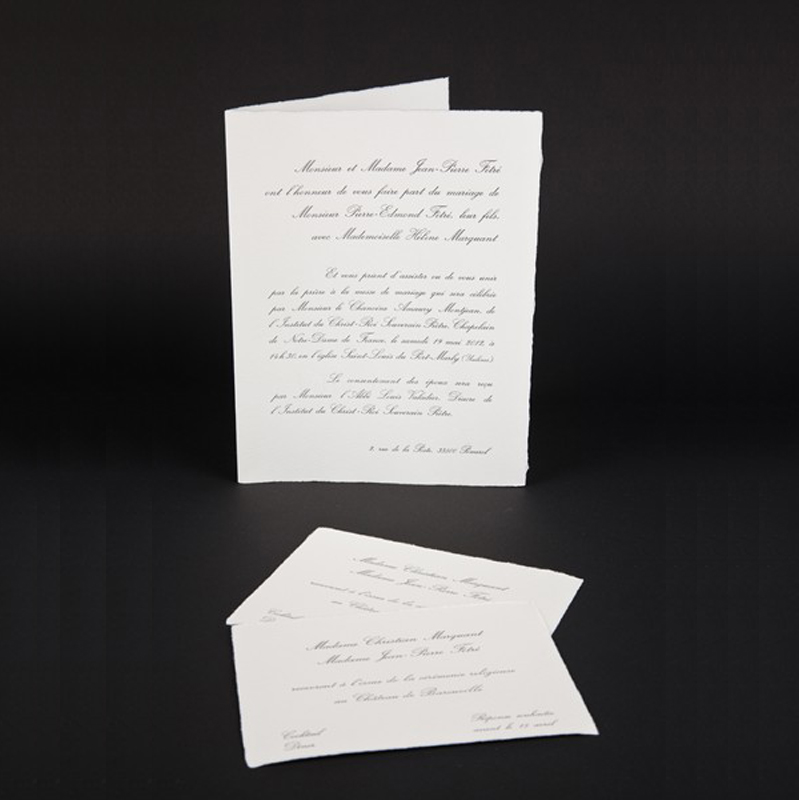 Monsieur et Madame Jean-Pierre Fetré
ont l'honneur de vous faire part du mariage de
Monsieur Pierre-Edmond Fetré, leur fils,
avec Mademoiselle Hélène Marquant
Et vous prient d'assister ou de vous unir
par la prière à la messe de mariage qui sera célébrée
par Monsieur le Chanoine Amaury Montjean, de
l'Institut du Christ-Roi Souverain Prêtre, Chapelain
de Notre-Dame de France, le samedi 19 mai 2012, à
14h30, en l'église Saint-Louis du Port-Marly (Yvelines).
Le consentement des époux sera reçu
par Monsieur l'Abbé Louis Valadier, Diacre de
l'Institut du Christ-Roi Souverain Prêtre.
rue de la
Madame Christian Marquant
Madame Jean-Pierre Fetré
recevront à l'issue de la
au Château
Cocktail
Madame Christian Marquant
Madame Jean-Pierre Fetré
recevront à l'issue de la cérémonie religieuse
au Château de
Cocktail
Dîner
Réponse souhaitée
avant le 15 avril